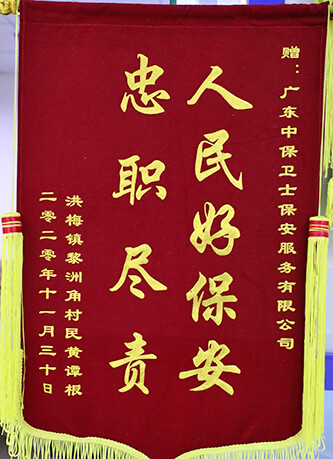 赠：广东中保卫士保安服务有限公司
人民好保安
忠职尽责
洪梅镇黎洲角村民黄谭根
二零二零年十一月三十日